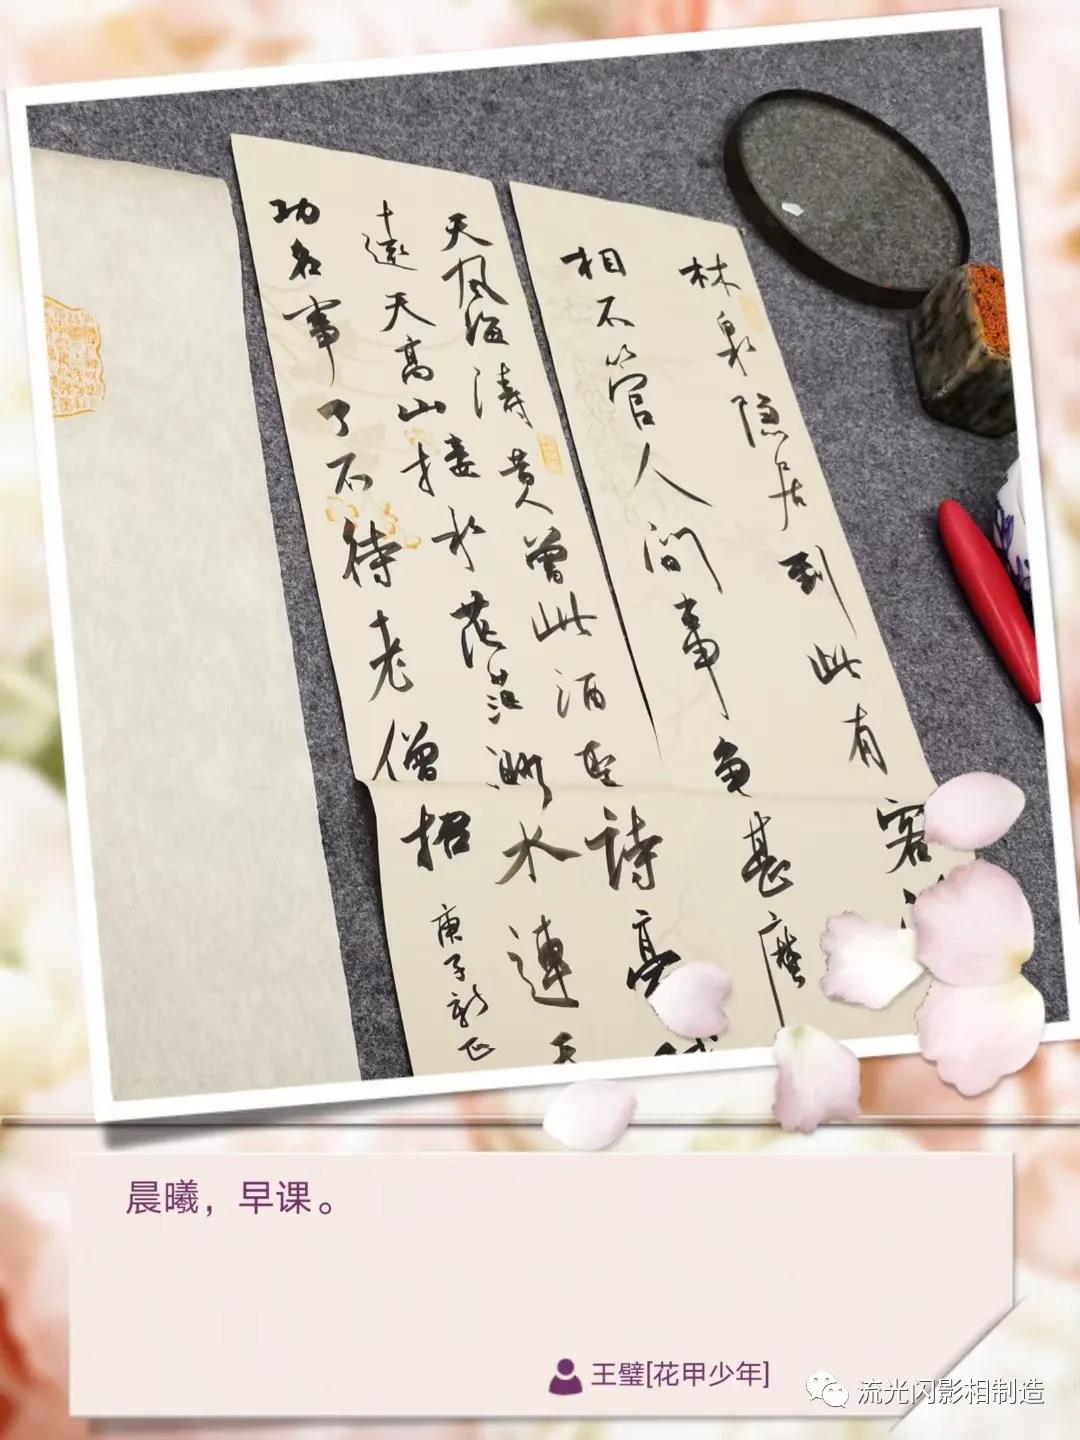 林泉隐居到此有客
相不管人间事争甚麼
天風海濤昔人曾此酒聖詩豪
遠天高山接水茫茫渺水連天
功名事了不待老僧招
庚子新正
晨曦，早课。
王璧[花甲少年]
流光闪影相制造